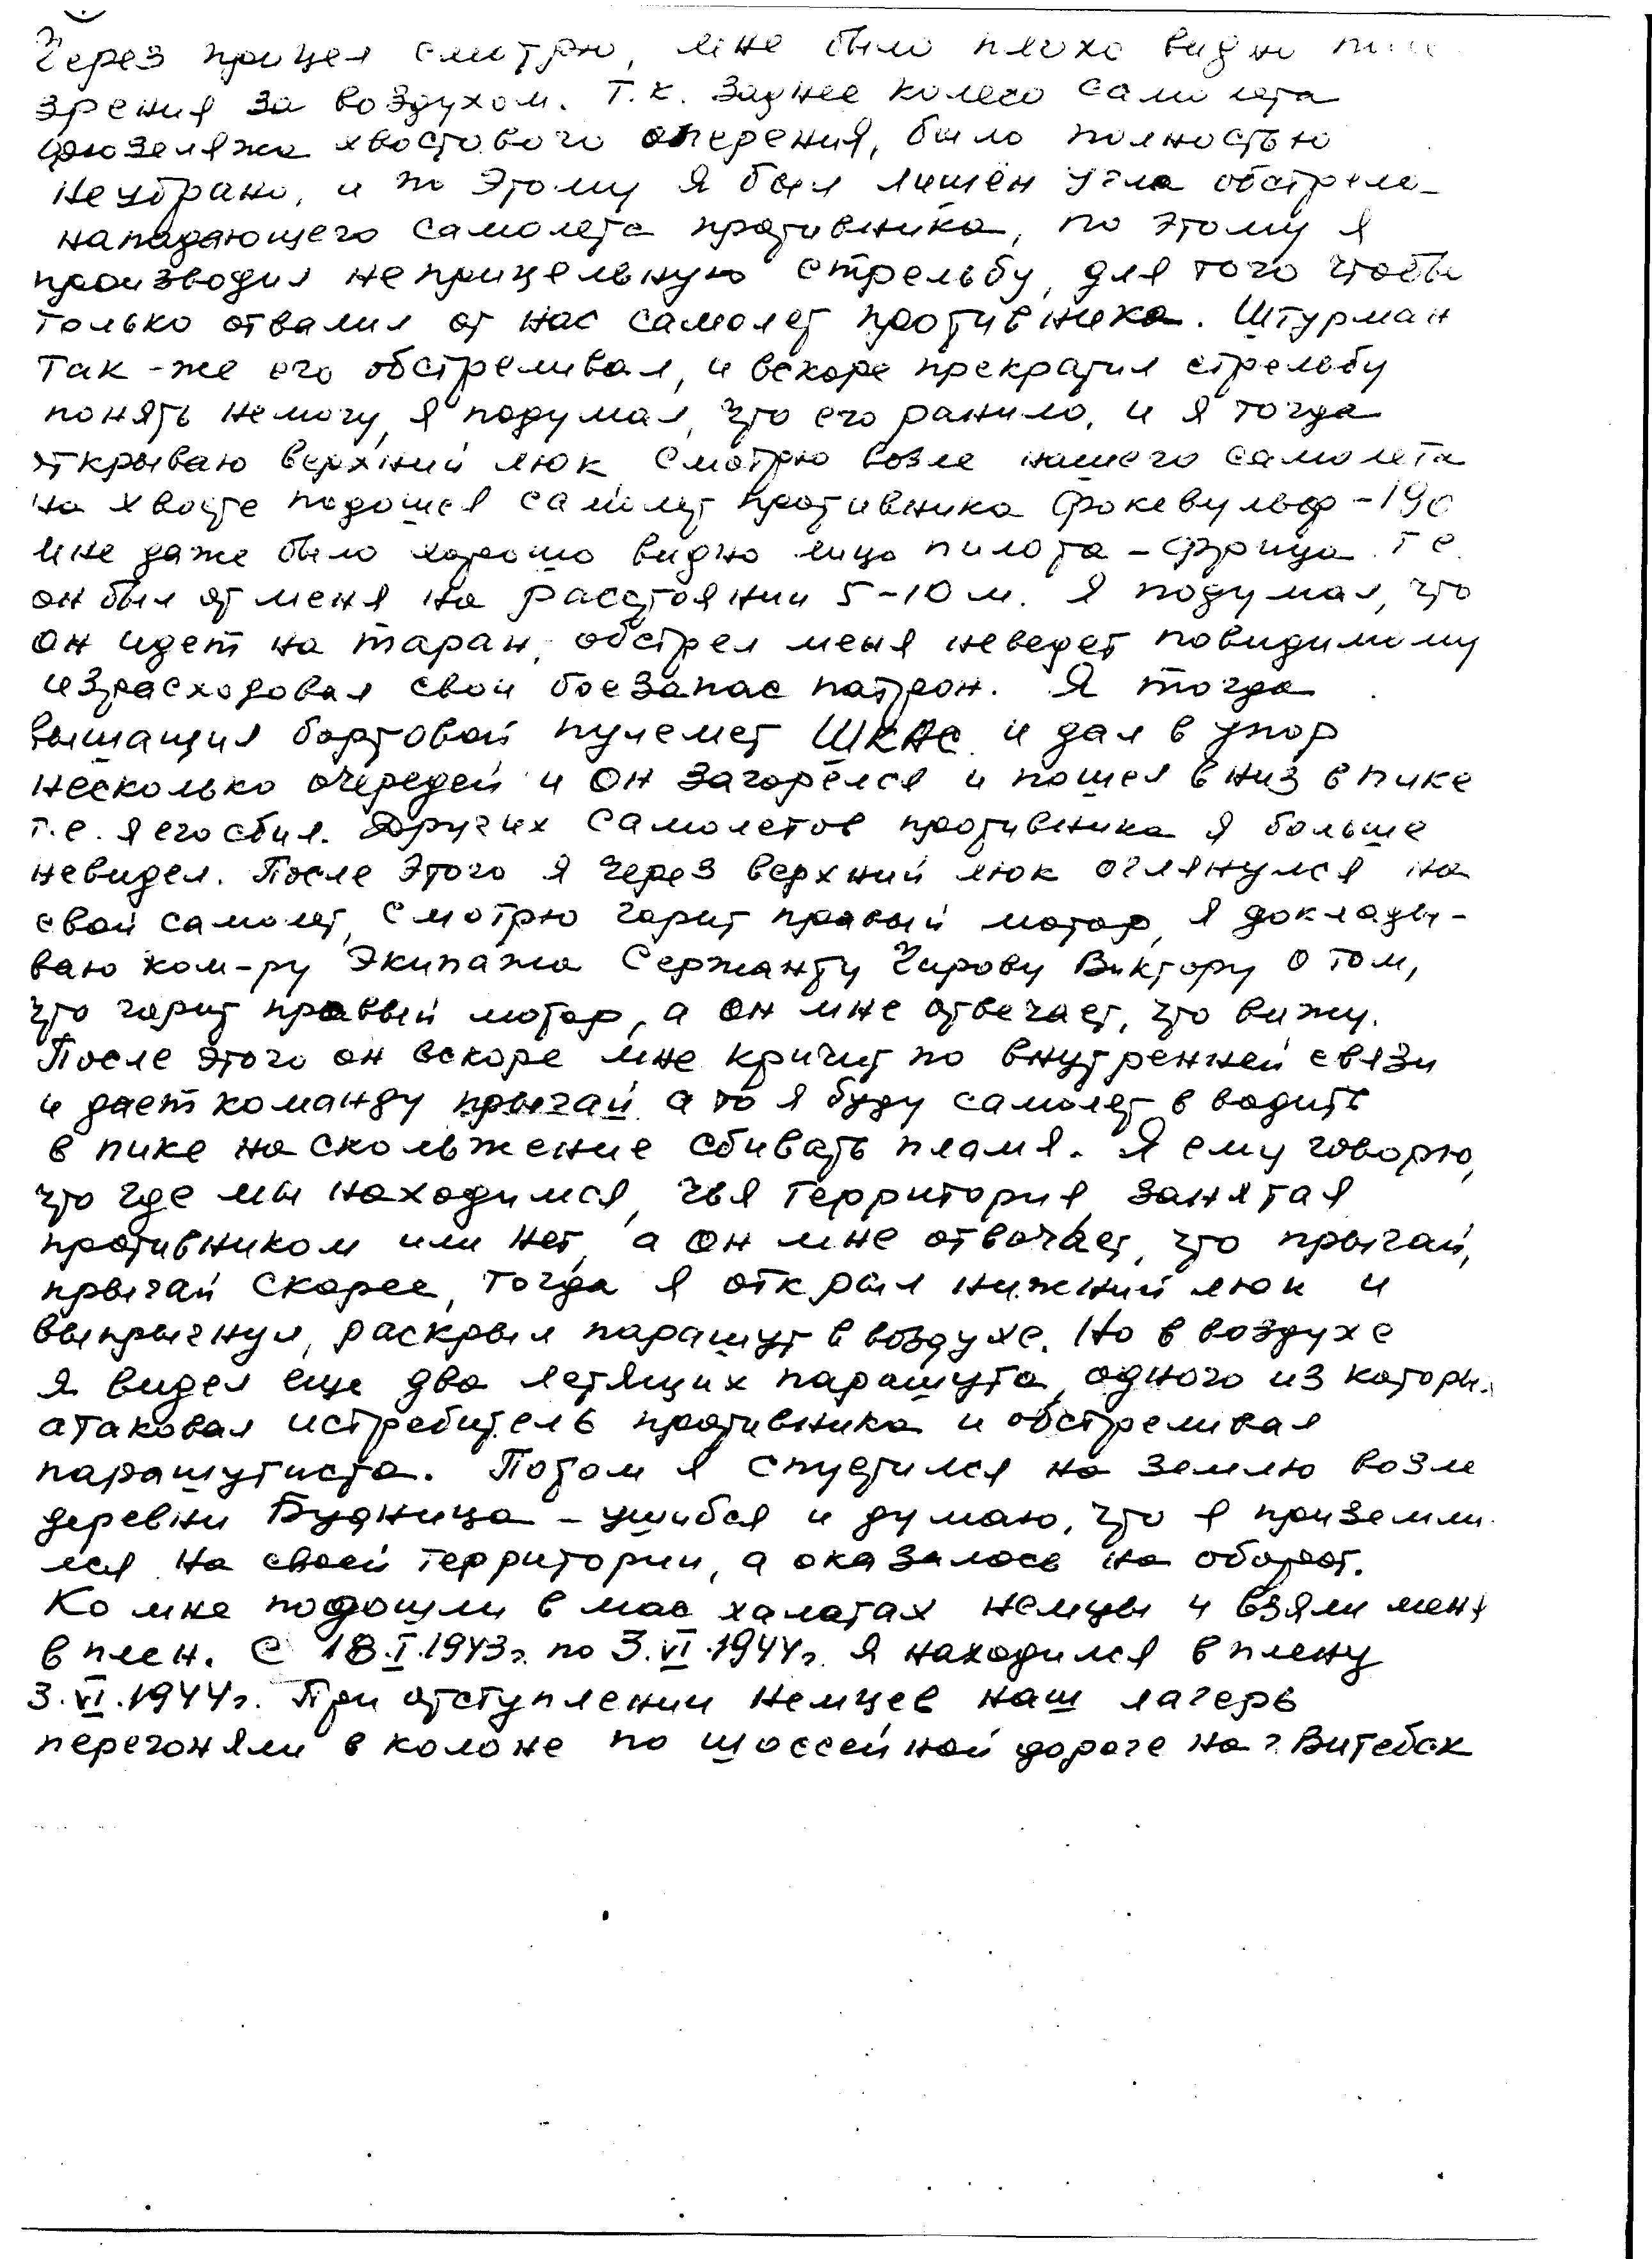 Через прицел смотрю, мне было плохо видно поле
зрения за воздухом. Т.к. заднее колесо самолета
фюзеляжа хвостового оперения, было полностью
неубрано, и по этому я был лишён угла обстрела
нападающего самолета противника, по этому я
производил неприцельную стрельбу, для того чтобы
только отвалил от нас самолет противника. Штурман
так-же его обстреливал, и вскоре прекратил стрельбу
понять немогу, я подумал, что его ранило, и я тогда
открываю верхний люк, смотрю возле нашего самолета
на хвосте подошел самолет противника Фокевульф-190
мне даже было хорошо видно лицо пилота-фрица т.е.
он был от меня на расстоянии 5-10 м. Я подумал, что
он идет на таран, обстрел меня неведет повидимому
израсходовал свой боезапас патрон. Я тогда
вытащил бортовой пулемет ШКАС и дал в упор
несколько очередей и он загорелся и пошел вниз в пике
т.е. я его сбил. Других самолетов противника я больше
невидел. После этого я через верхний люк оглянулся на
свой самолет, смотрю горит правый мотор, я доклады-
ваю ком-ру экипажа Сержанту Чирову Виктору о том,
что горит правый мотор, а он мне отвечает, что вижу.
После этого он вскоре мне кричит по внутренней связи
и дает команду прыгай а то я буду самолет вводить
в пике на скольжение сбивать пламя. Я ему говорю,
что где мы находимся, чья территория, занятая
противником или нет, а он мне отвечает, что прыгай,
прыгай скорее, тогда я открыл нижний люк и
выпрыгнул, раскрыл парашут в воздухе. Но в воздухе
я видел еще два летящих парашута, одного из которы
атаковал истребитель противника и обстреливал
парашутиста. Потом я спустился на землю возле
деревни Будница - ушибся и думаю, что я приземли
лся на своей территории, а оказалось на оборот.
Ко мне подошли в мас халатах немцы и взяли меня
в плен. С 18.I.1943г. по 3.VI.1944г. я находился в плену
3.VI.1944г. При отступлении немцев наш лагерь
перегоняли в колоне по шоссейной дороге на г. Витебск